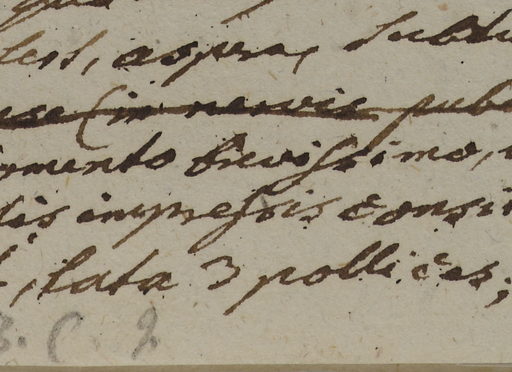 aspera, subtu
(in nervis pube
omento brevissimo,
tis impressis consi
, lata 3 pollices,